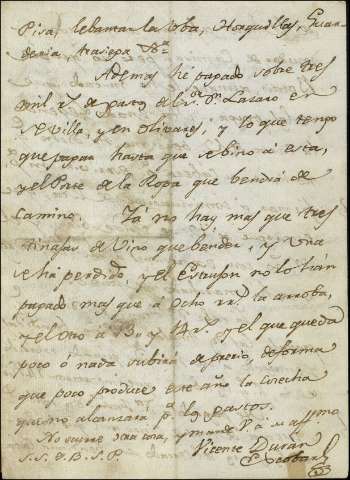 Pisa, lebantar la Uba, Horquillas, Guar
denia, trasiega &ca
Ademas hé pagado sobre tres
mil rs. de gasto del Sor. Dn. Lazaro en
Sevilla, y en Olivares, y lo que tengo
que pagar hasta que se bino á esta,
y el Porte de la Ropa que bendrá de
camino. Yá no hay mas que tres
tinajas de Vino que bender, y una
se há perdido, y el Estrujon no lo hán
pagado mas que á ocho rrs. la arroba,
y el otro á 13, y 14 rs. y el que queda
poco ó nada subirá de precio, de forma
que poco produce este año la cosecha
que no alcanzará pa. los gastos.
No ocurre otra cosa, y mande V. á su affmo
S. S. Q. B. S. P.
Vicente Durán
Escobar